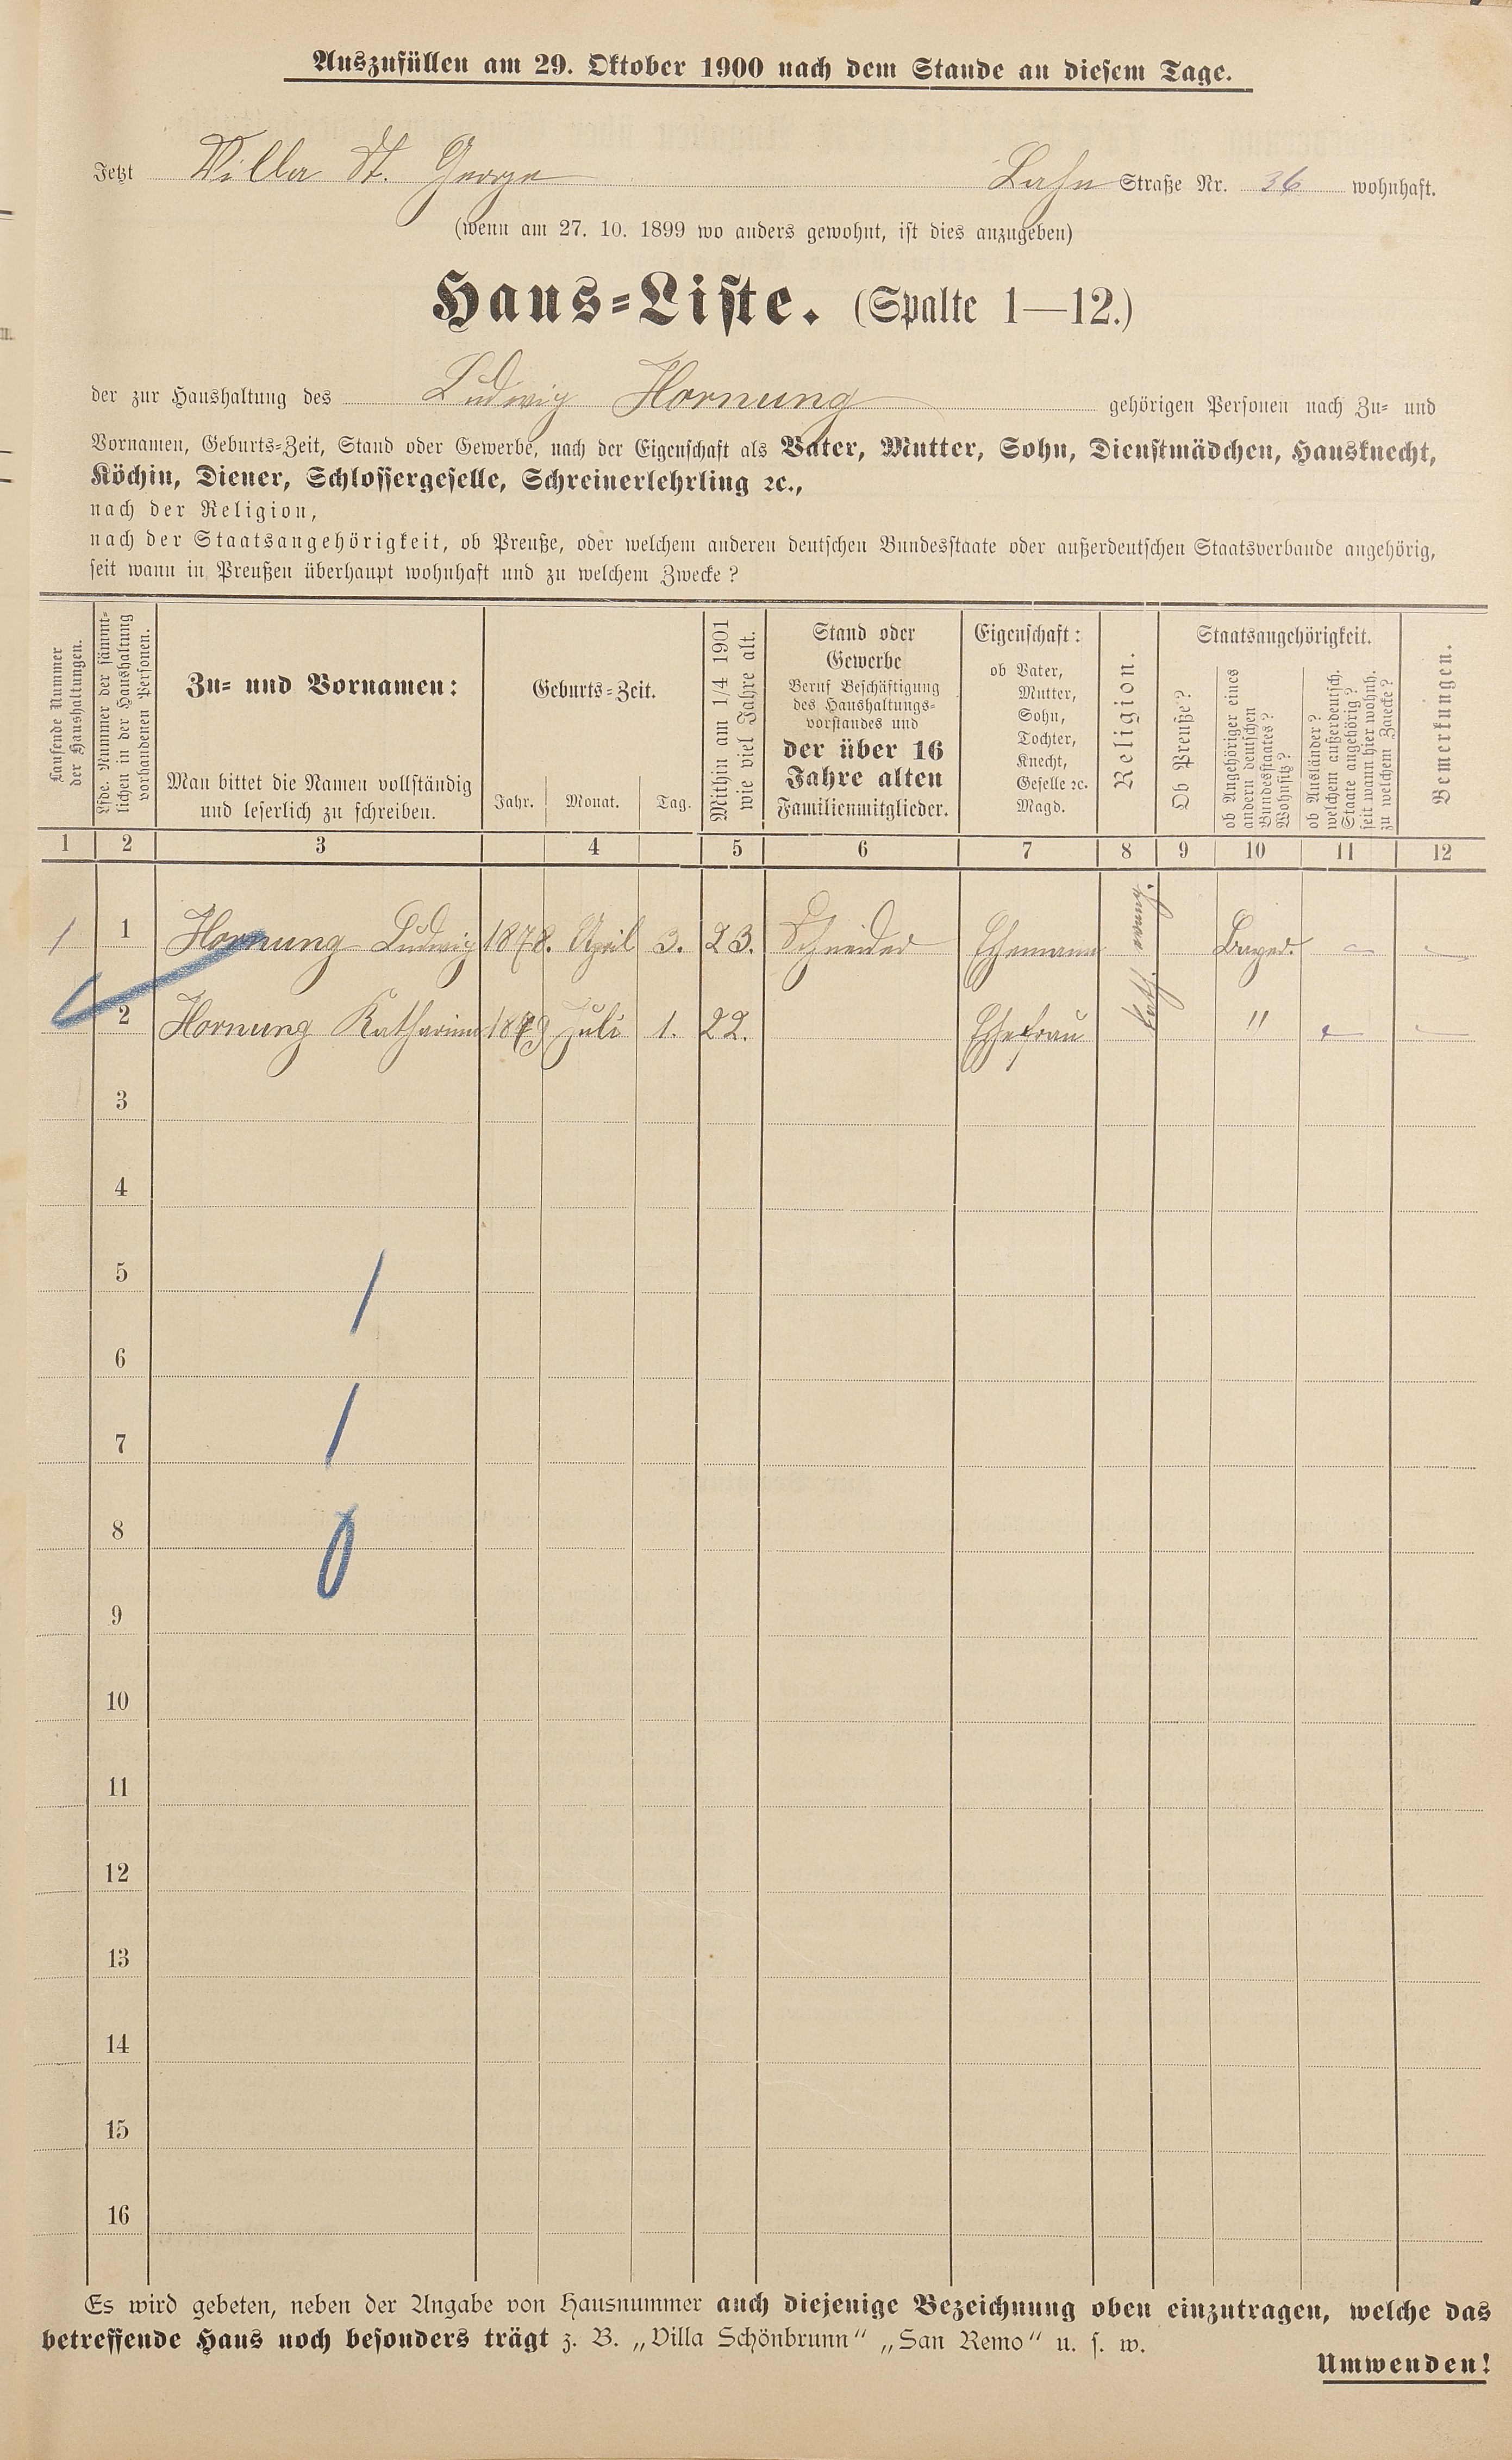 Auszufüllen am 29. Oktober 1900 nach dem Stande an diesem Tage.
Jetzt Villa St. George Lahn Straße Nr. 36 wohnhaft.
(wenn am 27. 10. 1899 wo anders gewohnt, ist dies anzugeben)
Haus-Liste. (Spalte 1—12.)
der zur Haushaltung des Ludwig Hornung gehörigen Personen nach Zu- und
Vornamen, Geburts-Zeit, Stand oder Gewerbe, nach der Eigenschaft als Vater, Mutter, Sohn, Dienstmädchen, Hausknecht,
Köchin, Diener, Schlossergeselle, Schreinerlehrling ꝛc.,
nach der Religion,
nach der Staatsangehörigkeit, ob Preuße, oder welchem anderen deutschen Bundesstaate oder außerdeutschen Staatsverbande angehörig,
seit wann in Preußen überhaupt wohnhaft und zu welchem Zwecke?
Laufende Nummer
der Haushaltungen.
Lfde. Nummer der sämmt-
lichen in der Haushaltung
vorhandenen Personen.
Zu- und Vornamen:
Man bittet die Namen vollständig
und leserlich zu schreiben.
Geburts-Zeit.
Jahr. Monat. Tag.
Mithin am 1/4 1901
wie viel Jahre alt.
Stand oder
Gewerbe
Beruf Beschäftigung
des Haushaltungs-
vorstandes und
der über 16
Jahre alten
Familienmitglieder.
Eigenschaft:
ob Vater,
Mutter,
Sohn,
Tochter,
Knecht,
Geselle ꝛc.
Magd.
Religion.
Staatsangehörigkeit.
Ob Preuße?
ob Angehöriger eines
andern deutschen
Bundesstaates?
Wohnsitz?
ob Ausländer?
welchem außerdeutsch.
Staate angehörig?
seit wann hier wohnh.
zu welchem Zwecke?
Bemerkungen.
1 2 3 4 5 6 7 8 9 10 11 12
1 1 Hornung Ludwig 1878. April 3. 23. Schneider Ehemann evang. Bayer. – –
2 Hornung Katharina 1879 Juli 1. 22. Ehefrau kath. " – –
3
4
5
6
7
8
9
10
11
12
13
14
15
16
1
1
0
Es wird gebeten, neben der Angabe von Hausnummer auch diejenige Bezeichnung oben einzutragen, welche das
betreffende Haus noch besonders trägt z. B. „Villa Schönbrunn“ „San Remo“ u. s. w.
Umwenden!